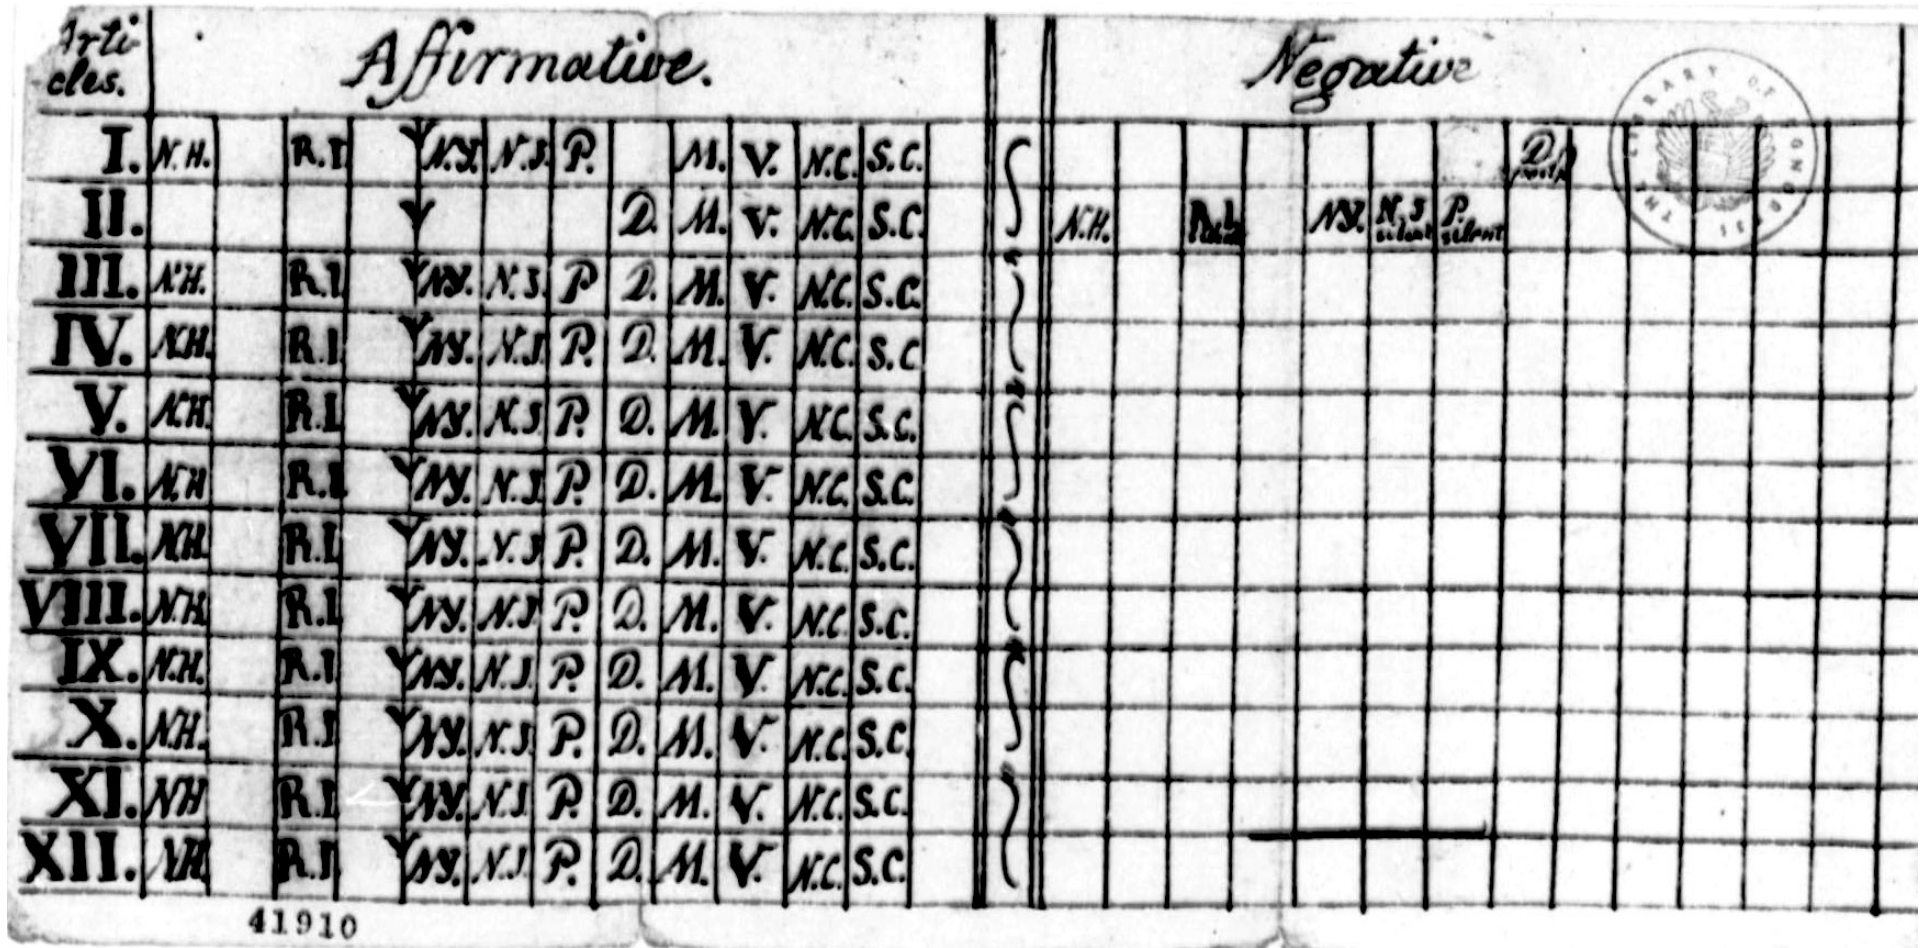 Arti
cles. Affirmative. Negative
I. N.H. R.I Y N.Y. N.J. P. M. V. N.C. S.C. D.
II. Y D. M. V. N.C. S.C. N.H. N.Y. N.J. silent P. silent
III. N.H. R.I. Y N.Y. N.J. P D. M. V. N.C. S.C.
IV. N.H. R.I. Y N.Y. N.J. P. D. M. V. N.C. S.C
V. N.H. R.I. Y N.Y. N.J P. D. M. V. N.C. S.C.
VI. N.H R.I. Y N.Y. N.J. P. D. M. V. N.C. S.C.
VII. N.H. R.I. Y N.Y. N.J P. D. M. V. N.C. S.C.
VIII. N.H. R.I. Y N.Y. N.J P. D. M. V. N.C. S.C.
IX. N.H. R.I. Y N.Y. N.J. P. D. M. V. N.C. S.C.
X. N.H. R.I Y N.Y. N.J. P. D. M. V. N.C. S.C.
XI. N.H R.I. Y N.Y. N.J. P. D. M. V. N.C. S.C.
XII. N.H. R.I. Y N.Y. N.J. P. D. M. V. N.C. S.C.
THE LIBRARY OF CONGRESS
41910